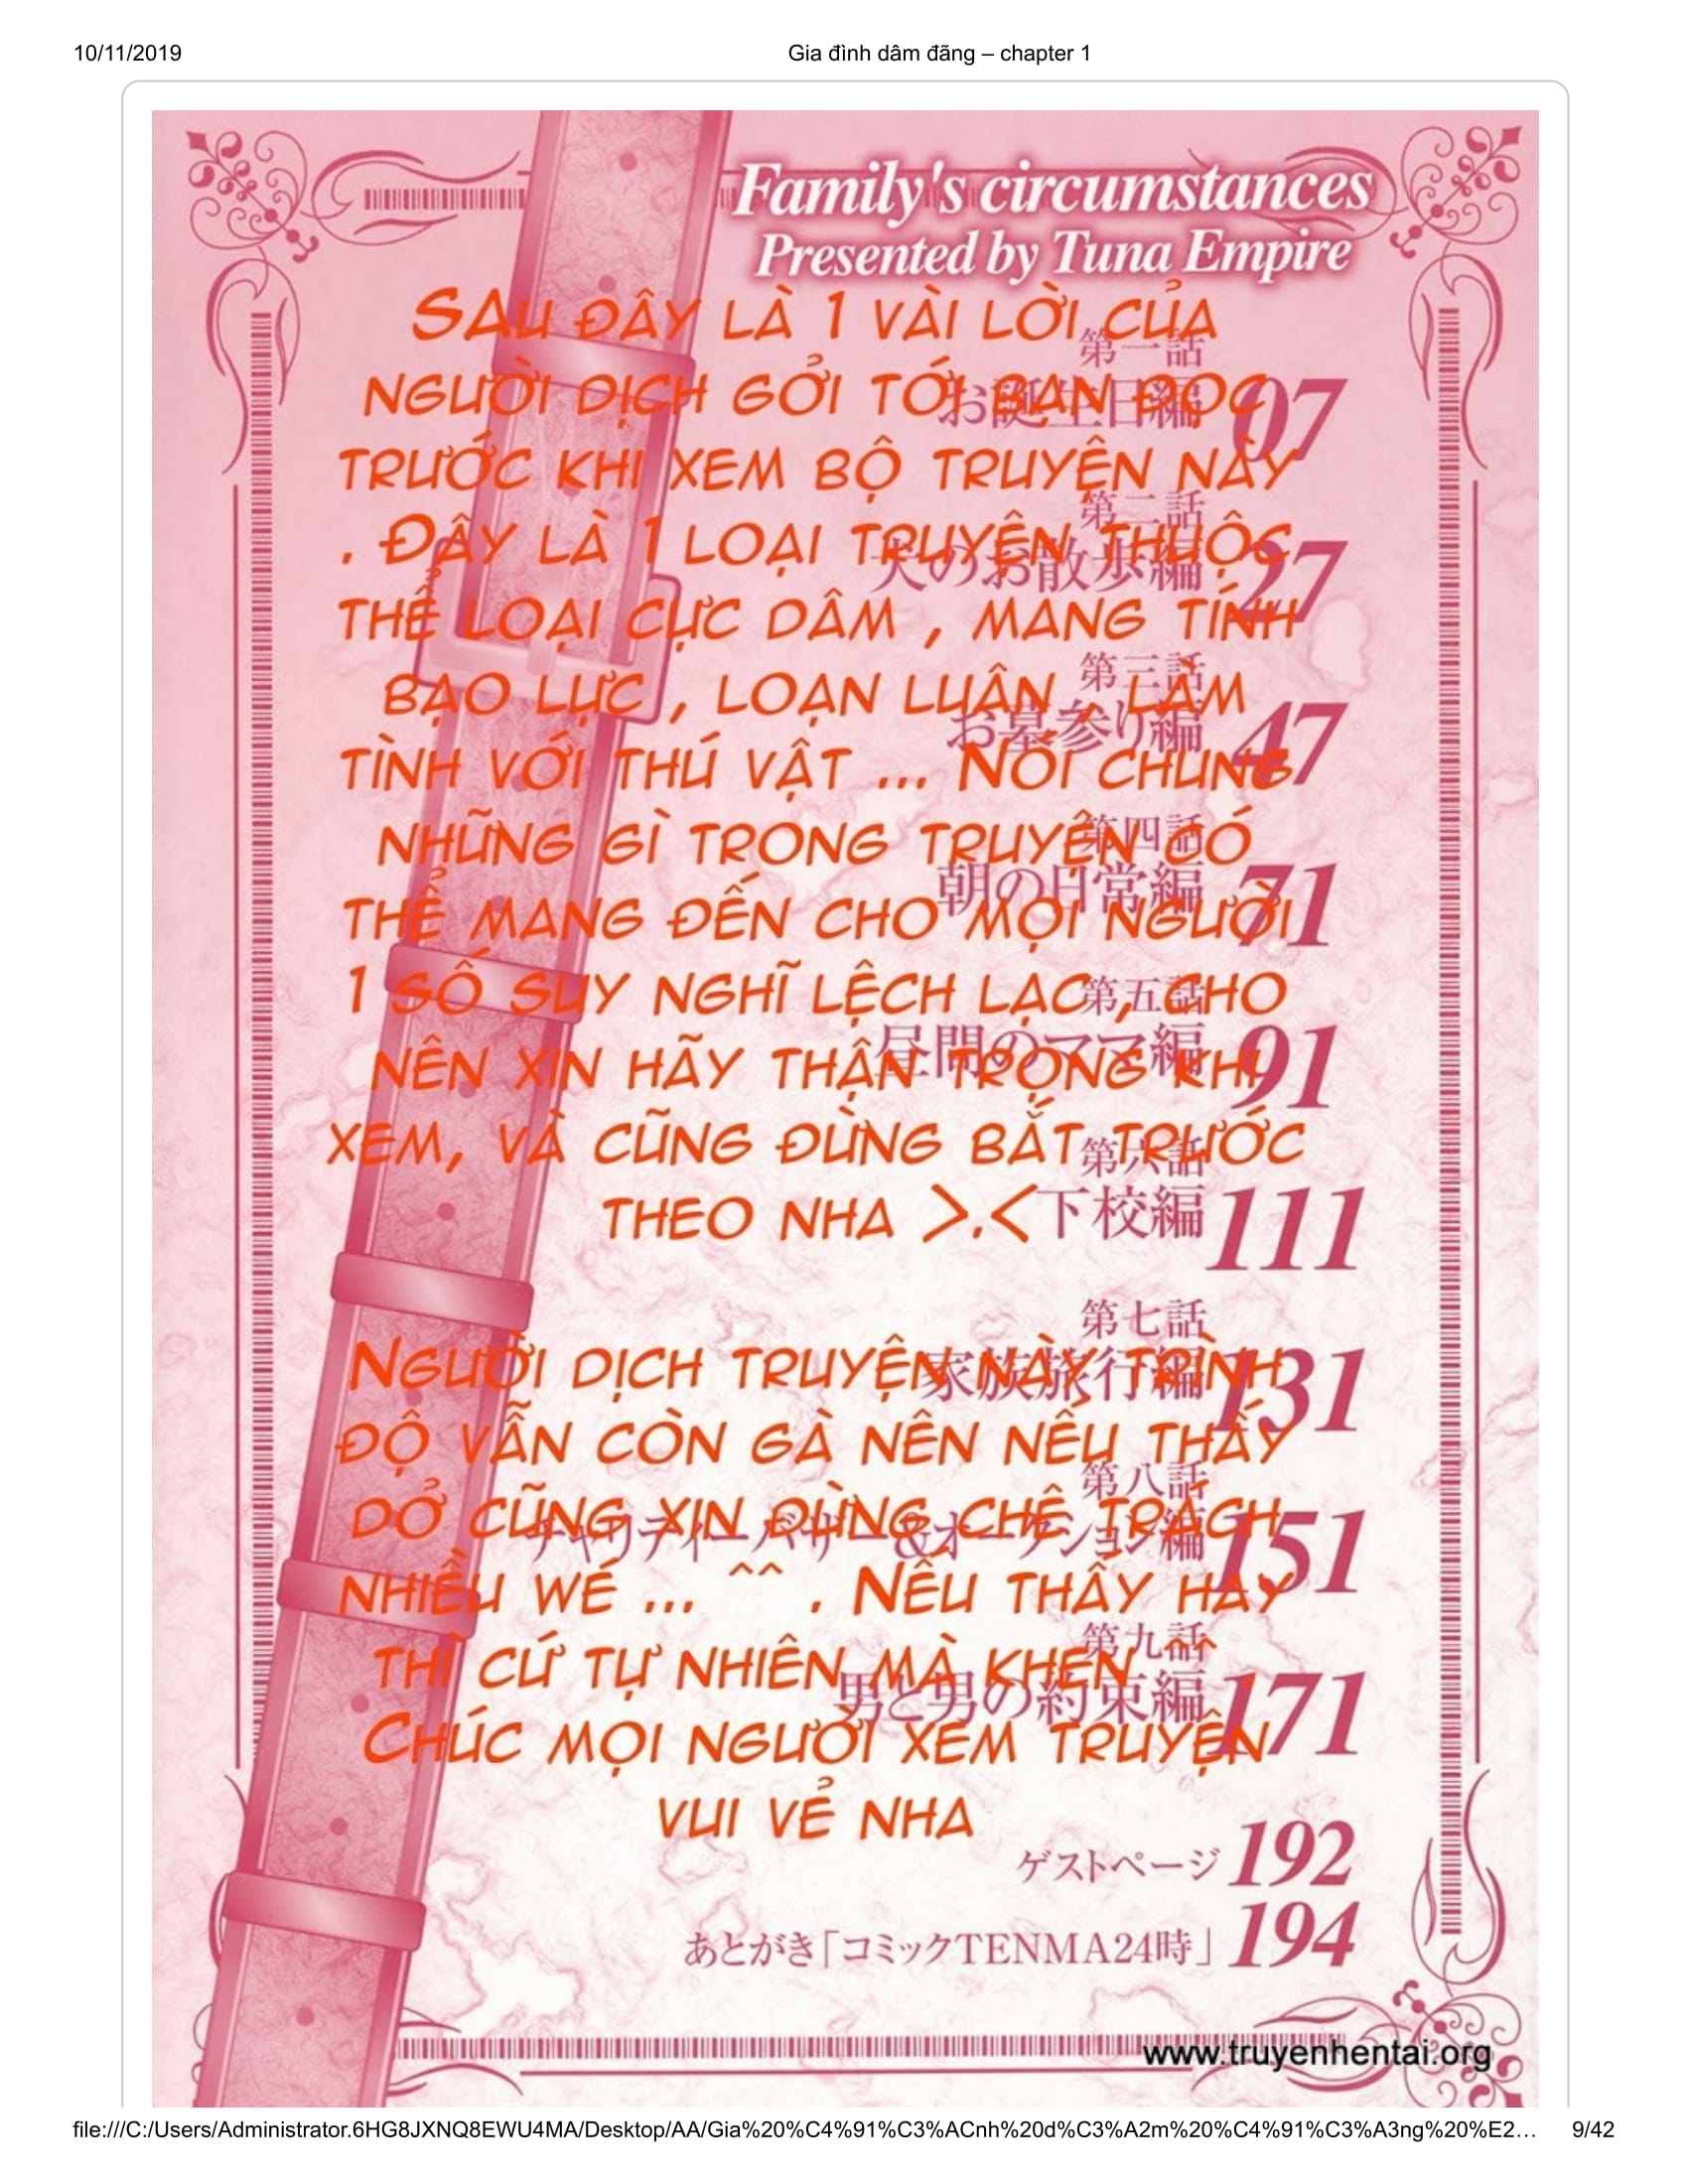 10/11/2019
Gia đình dâm đãng – chapter 1
Family's circumstances
Presented by Tuna Empire
SAU ĐÂY LÀ 1 VÀI LỜI CỦA
NGƯỜI DỊCH GỞI TỚI BẠN ĐỌC
TRƯỚC KHI XEM BỘ TRUYỆN NÀY
. ĐÂY LÀ 1 LOẠI TRUYỆN THUỘC
THỂ LOẠI CỰC DÂM , MANG TÍNH
BẠO LỰC , LOẠN LUÂN , LÀM
TÌNH VỚI THÚ VẬT ... NÓI CHUNG
NHỮNG GÌ TRONG TRUYỆN CÓ
THỂ MANG ĐẾN CHO MỌI NGƯỜI
1 SỐ SUY NGHĨ LỆCH LẠC , CHO
NÊN XIN HÃY THẬN TRỌNG KHI
XEM, VÀ CŨNG ĐỪNG BẮT TRƯỚC
THEO NHA >.<
NGƯỜI DỊCH TRUYỆN NÀY TRÌNH
ĐỘ VẪN CÒN GÀ NÊN NẾU THẤY
DỞ CŨNG XIN ĐỪNG CHÊ TRÁCH
NHIỀU WÉ ... ^^ . NẾU THẤY HAY
THÌ CỨ TỰ NHIÊN MÀ KHEN ^^
CHÚC MỌI NGƯỜI XEM TRUYỆN
VUI VẺ NHA
第一話
お誕生日編 07
第二話
犬のお散歩編 27
第三話
お墓参り編 47
第四話
朝の日常編 71
第五話
昼間のママ編 91
第六話
下校編 111
第七話
家族旅行編 131
第八話
チャリティーバザー&オークション編 151
第九話
男と男の約束編 171
ゲストページ 192
あとがき「コミックTENMA24時」 194
www.truyenhentai.org
file:///C:/Users/Administrator.6HG8JXNQ8EWU4MA/Desktop/AA/Gia%20%C4%91%C3%ACnh%20d%C3%A2m%20%C4%91%C3%A3ng%20%E2…
9/42